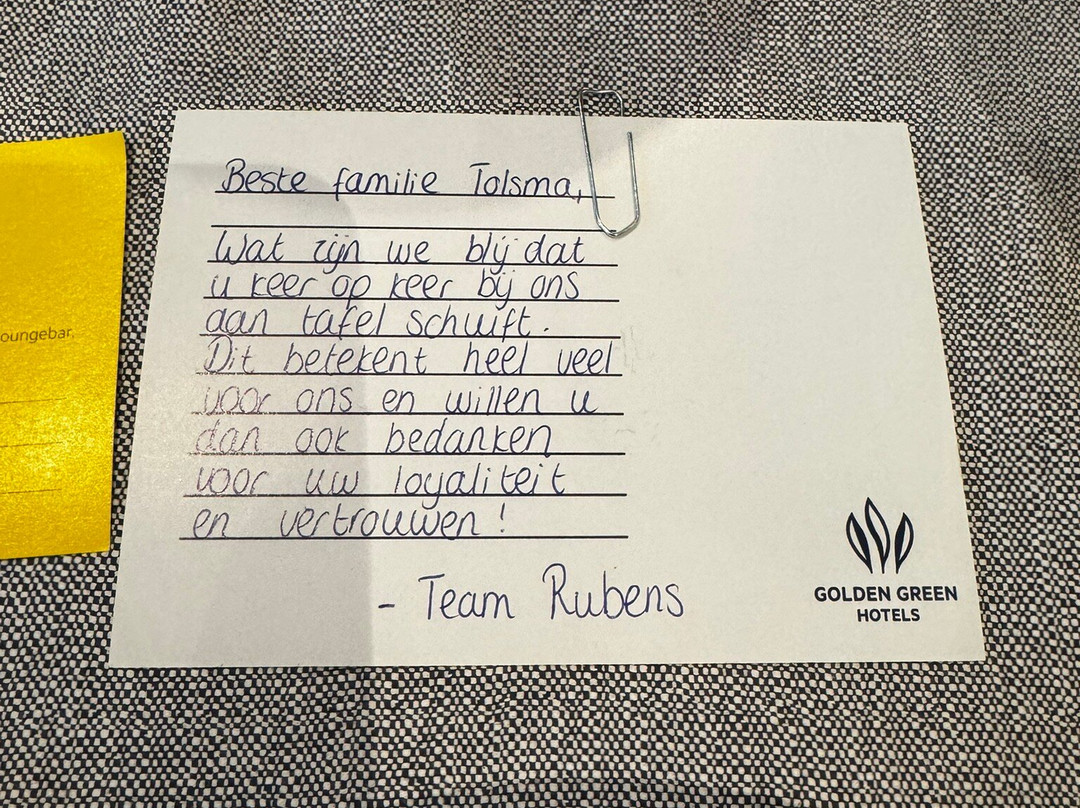 Beste familie Tolsma,
Wat zijn we blij dat
u keer op keer bij ons
aan tafel schuift.
Dit betekent heel veel
voor ons en willen u
dan ook bedanken
voor uw loyaliteit
en vertrouwen!
- Team Rubens
GOLDEN GREEN
HOTELS
oungebar,